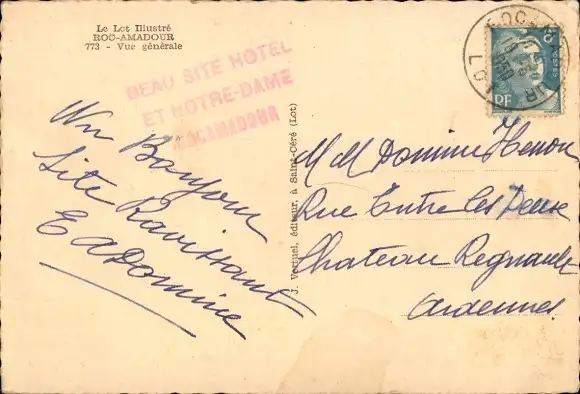 Le Lot Illustré
ROC-AMADOUR
773 - Vue générale
BEAU SITE HOTEL
ET NOTRE-DAME
ROCAMADOUR
Un Bonjour
Site Ravissant
E Domine
J. Vertuel, éditeur, à Saint-Céré (Lot)
RF
LOT
M M Domine Henon
Rue Entre les Deux
Chateau Regnault
Ardennes